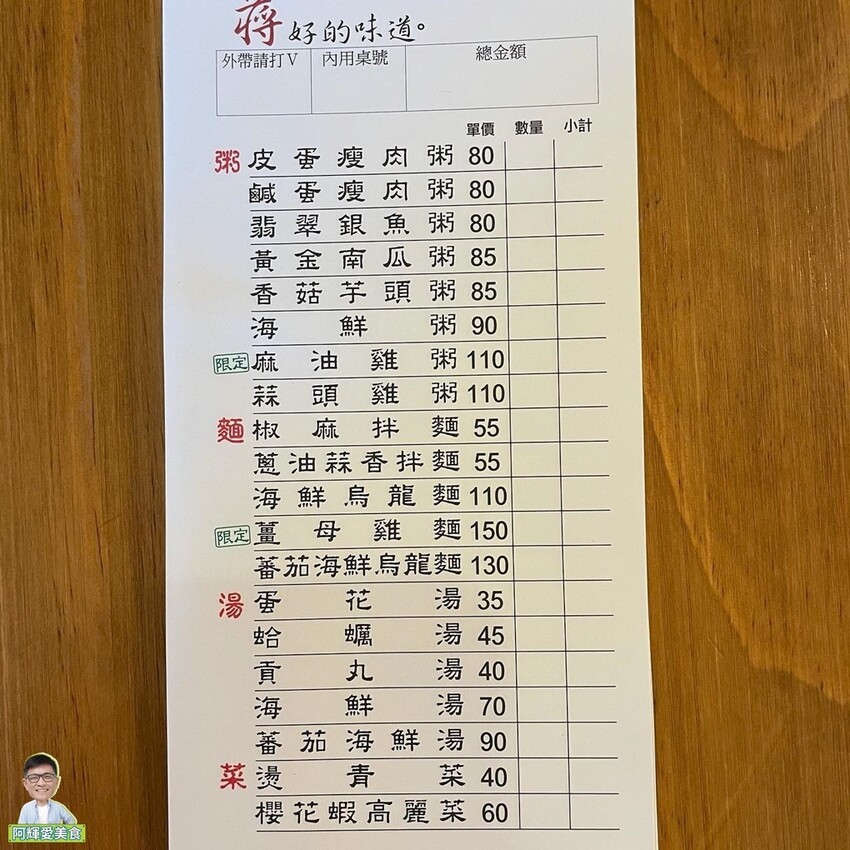 蔣 好的味道。
外帶請打V 內用桌號 總金額
單價 數量 小計
粥 皮蛋瘦肉粥 80
鹹蛋瘦肉粥 80
翡翠銀魚粥 80
黃金南瓜粥 85
香菇芋頭粥 85
海鮮粥 90
限定 麻油雞粥 110
蒜頭雞粥 110
麵 椒麻拌麵 55
蔥油蒜香拌麵 55
海鮮烏龍麵 110
限定 薑母雞麵 150
蕃茄海鮮烏龍麵 130
湯 蛋花湯 35
蛤蠣湯 45
貢丸湯 40
海鮮湯 70
蕃茄海鮮湯 90
菜 燙青菜 40
櫻花蝦高麗菜 60
阿輝愛美食